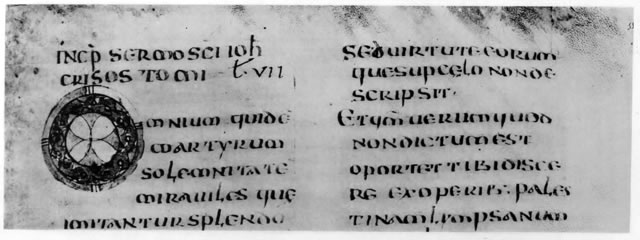 INCP SERMO SCI IOH
CRISOSTOMI t·VII
OMNIUM QUIDE
MARTYRUM
SOLEMNITATE
MIRAVILES QUE
IMITANTUR
SED VIRTUTE EORUM
QUE SUP CELO NON DE
SCRIPSIT·
ET QM UERUM QUOD
NON DICTUM EST
OPORTET TIBI DISCE
RE EX OPERIB; PALES
TINAM